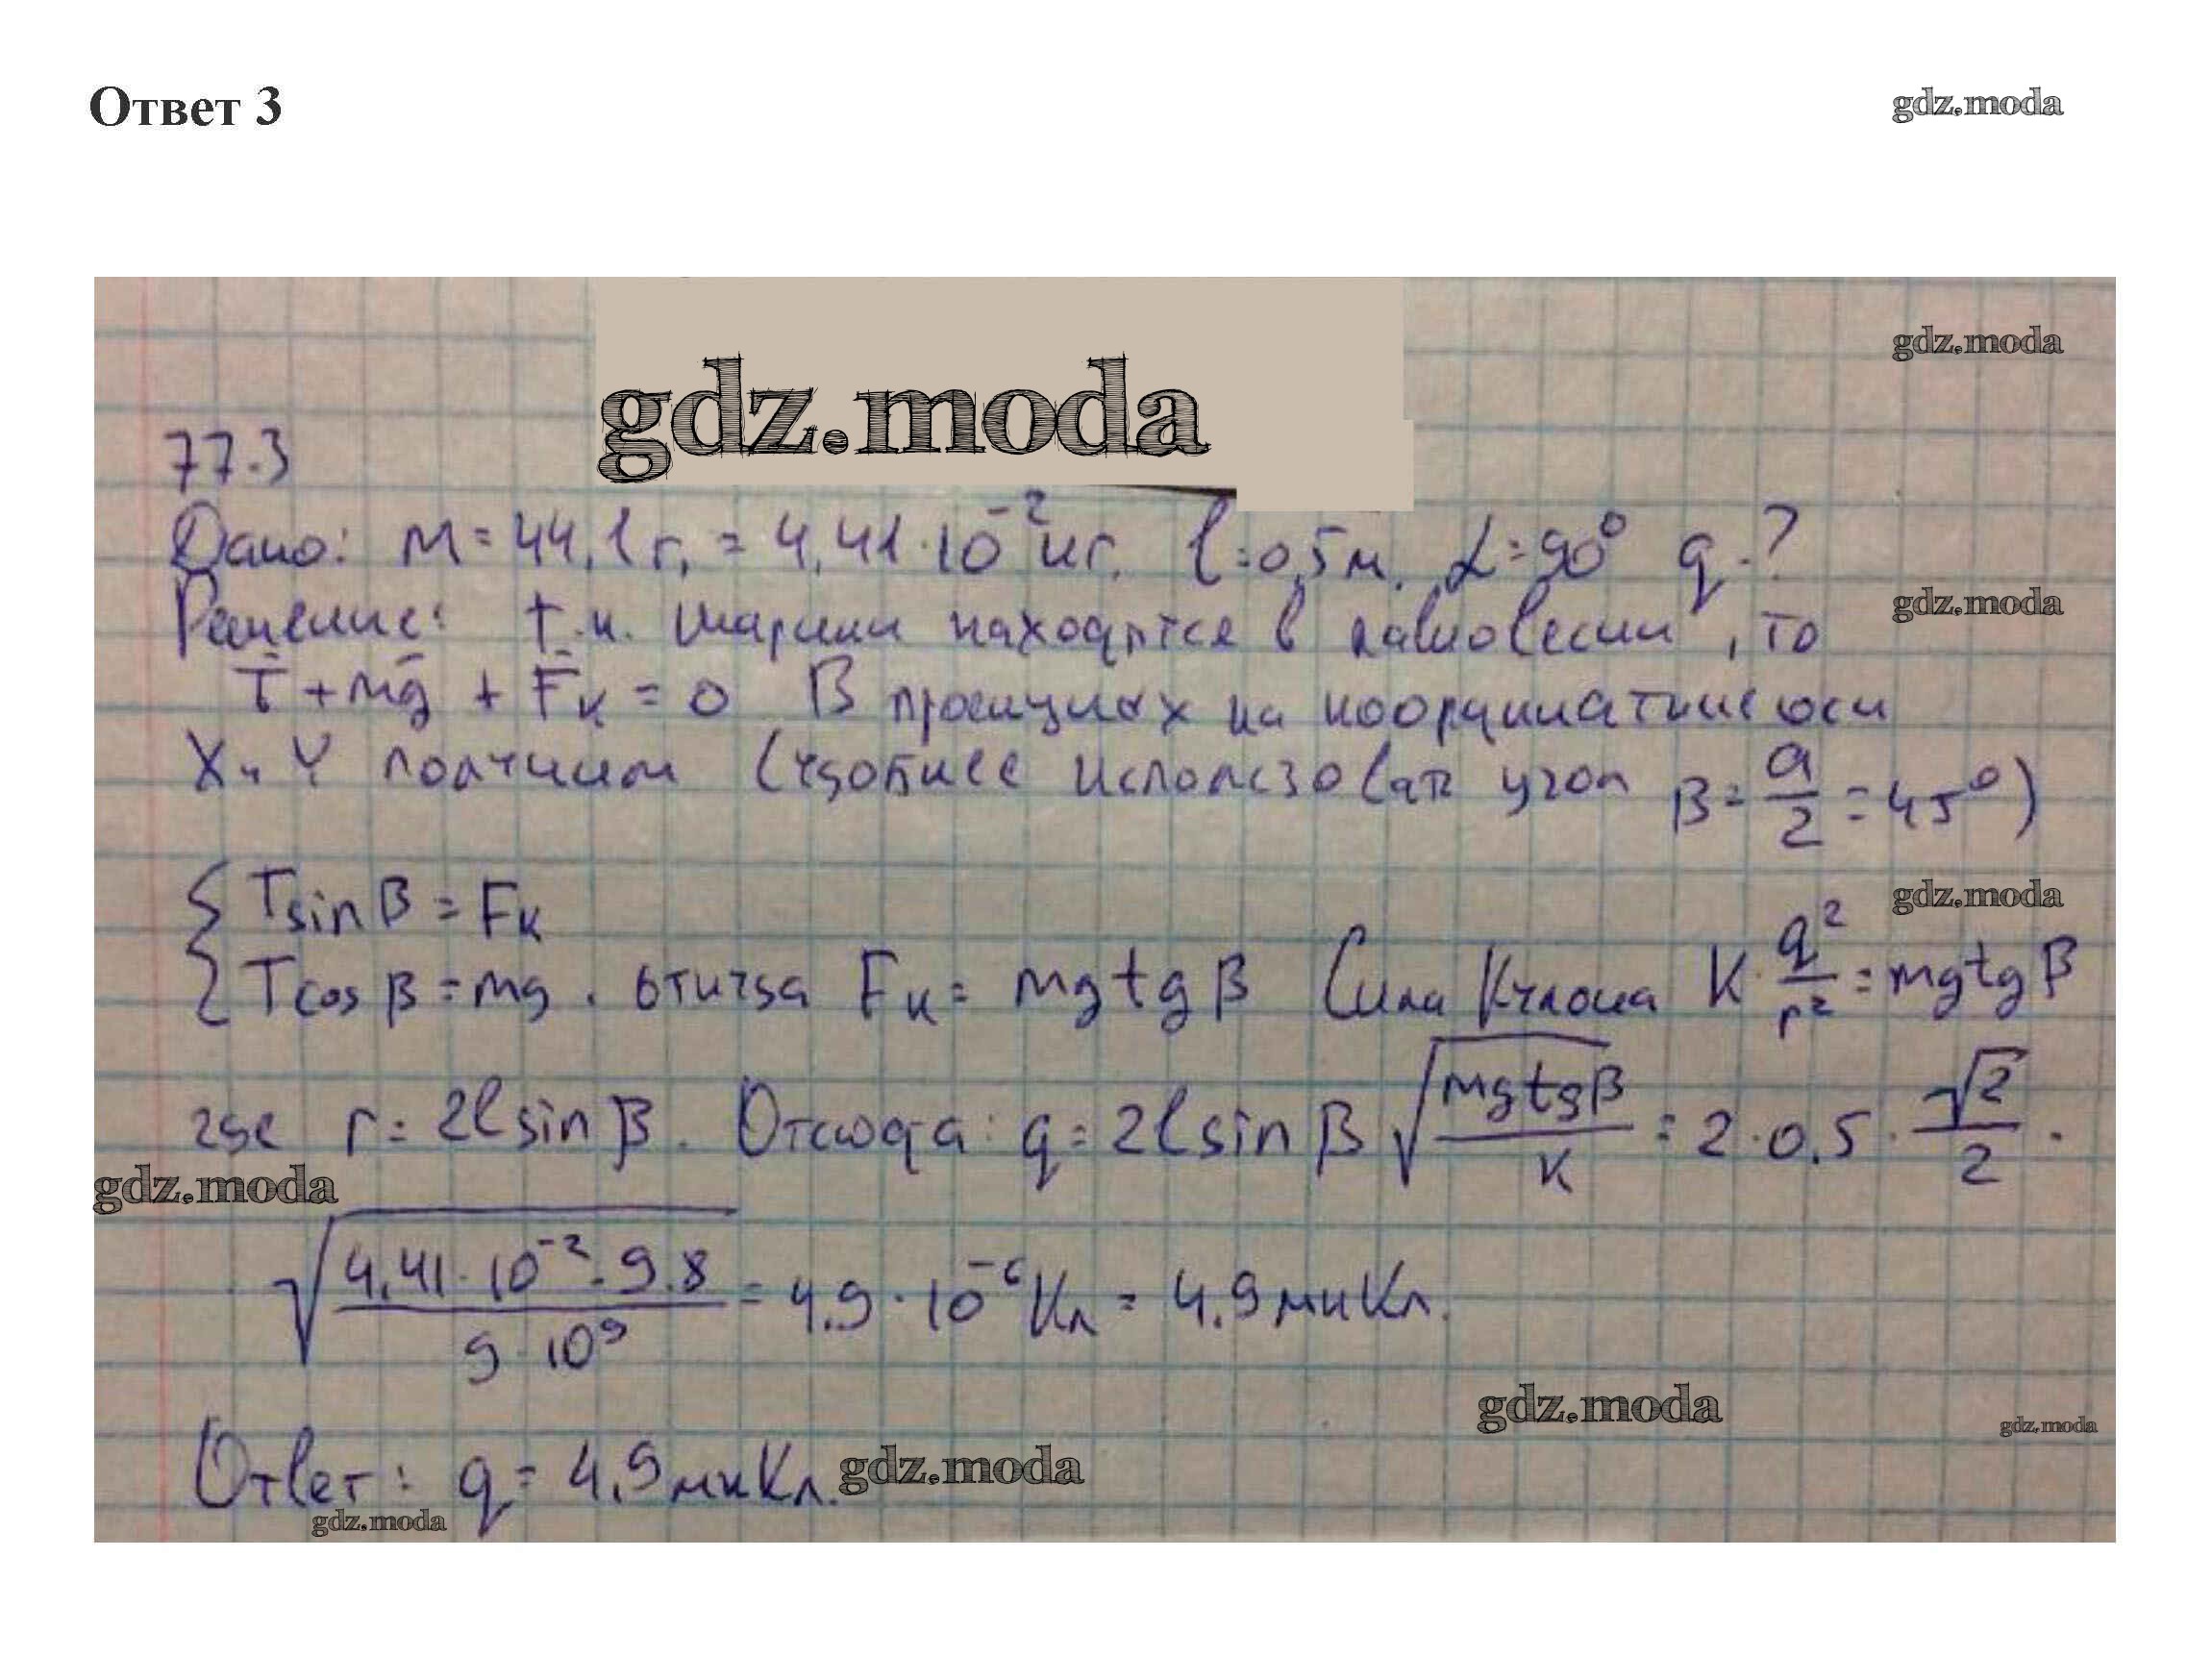 Ответ 3
gdz.moda
gdz.moda
gdz.moda
77.3
Дано: m = 44,1 г, = 4,41·10⁻² кг. l = 0,5 м. α = 90° q - ?
gdz.moda
Решение: т.к. шарики находятся в равновесии, то
T̄ + mḡ + F̄к = 0 В проекциях на координатные оси
X и Y получим (удобнее использовать угол β = a/2 = 45°)
gdz.moda
{ T sin β = Fк
{ T cos β = mg. откуда Fк = mg tg β Сила Кулона K · q²/r² = mg tg β
где r = 2l sin β. Отсюда: q = 2l sin β √(mg tg β / к) = 2·0,5 · √2/2 ·
gdz.moda
· √(4,41·10⁻²·9.8 / 9·10⁹) = 4.9·10⁻⁶ Кл = 4.9 мкКл.
gdz.moda
gdz.moda
Ответ: q = 4,9 мкКл.
gdz.moda
gdz.moda